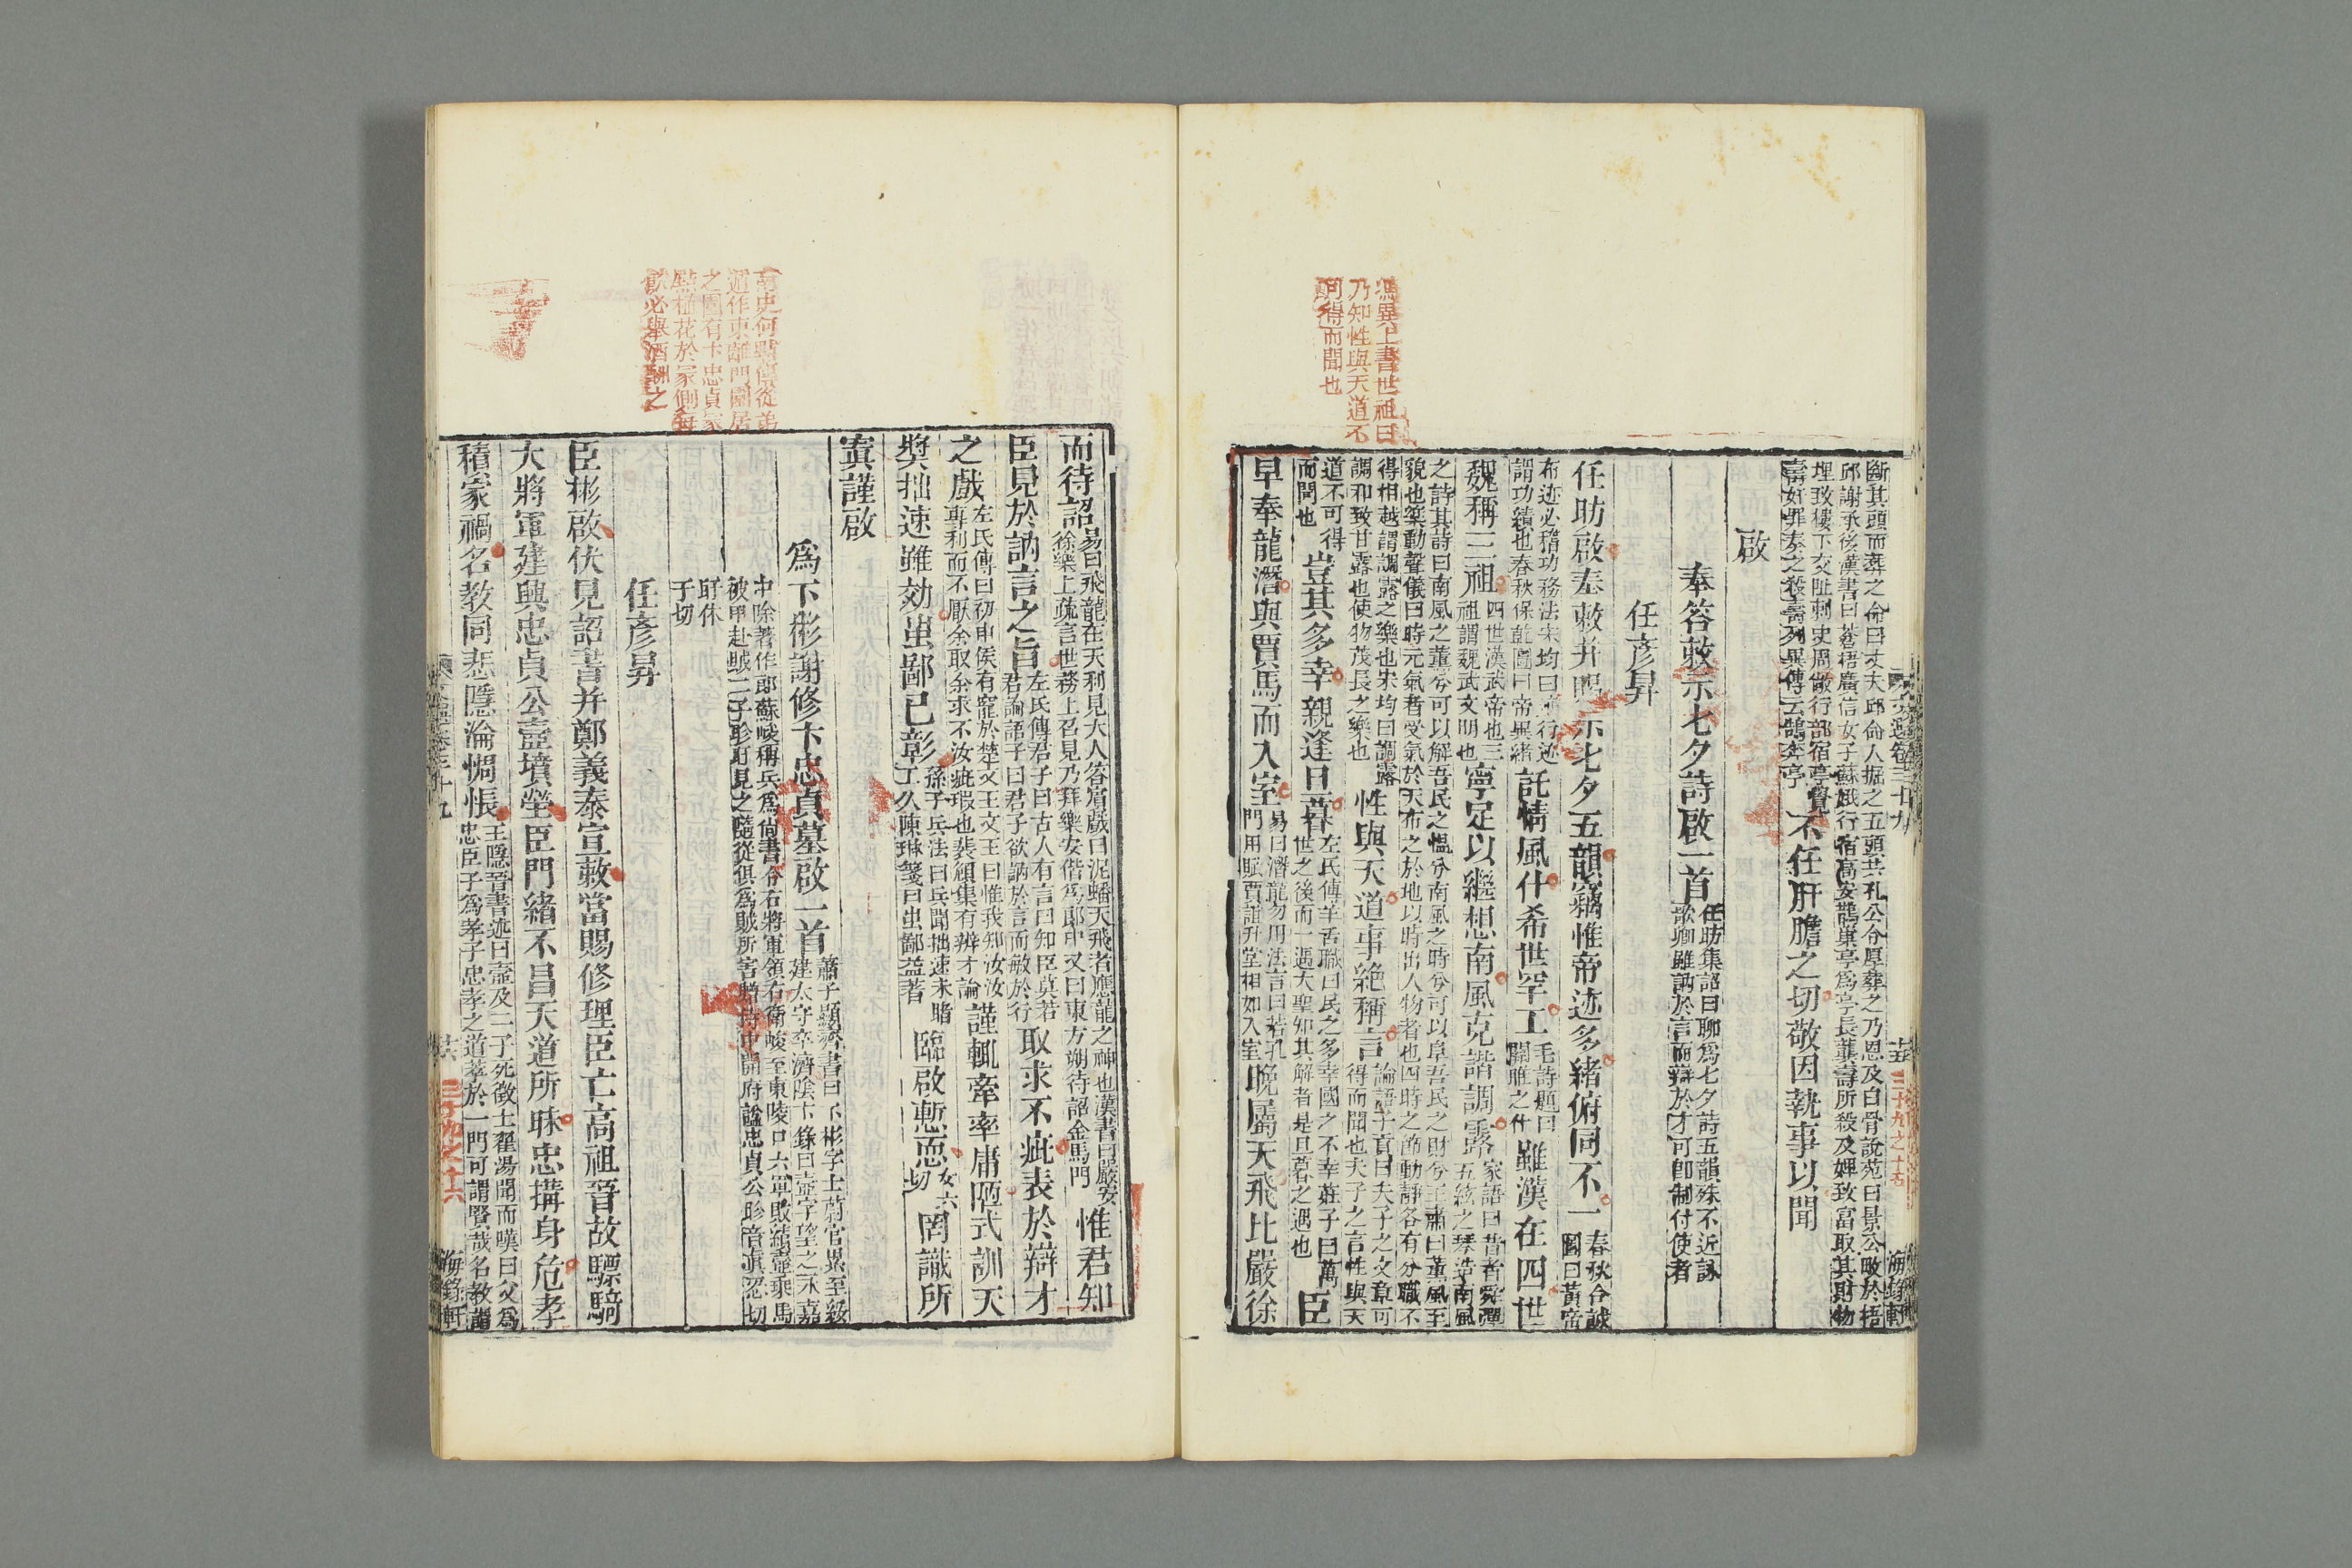 馮異上書世祖曰
乃知性與天道不
可得而聞也
斷其頭而葬之命曰丈夫邱命人掘之五頭共孔公令厚葬之乃恩及白骨說苑曰景公畋於梧
邱謝承後漢書曰蒼梧廣信女子蘇娥行宿高安鵲巢亭爲亭長龔壽所殺及婢致富取其財物
埋致樓下交阯刺史周敞行部宿亭覺
壽奸罪奏之殺壽列異傳云鵠奔亭
不任肝膽之切敬因執事以聞
啟
奉答敕示七夕詩啟一首
任昉集詔曰聊爲七夕詩五韻殊不近詠
歌卿雖訥於言而辯於才可卽制付使者
任彥昇
任昉啟奉敕并賜示七夕五韻竊惟帝迹多緒俯同不一
春秋合誠
圖曰黃帝
布迹必稽功務法宋均曰
行迹
謂功績也春秋保乾圖曰帝異緒
託情風什希世罕工
毛詩題曰
關雎之什
雖漢在四世
魏稱三祖
四世漢武帝也三
祖謂魏武文明也
寧足以繼想南風克諧調露
家語曰昔者舜彈
五絃之琴造南風
之詩其詩曰南風之薰兮可以解吾民之慍兮南風之時兮可以阜吾民之財兮王肅曰薰風至
貌也樂動聲儀曰時元氣者受氣於天布之於地以時出入物者也四時之節動靜各有分職不
得相越謂調露之樂也宋均曰調露
調和致甘露也使物茂長之樂也
性與天道事絶稱言
論語子貢曰夫子之文章可
得而聞也夫子之言性與天
道不可得
而聞也
豈其多幸親逢旦暮
左氏傳羊舌職曰民之多幸國之不幸莊子曰萬
世之後而一遇大聖知其解者是旦暮之遇也
臣
早奉龍潛與賈馬而入室
易曰潛龍勿用法言曰若孔
門用賦賈誼升堂相如入室
晚屬天飛比嚴徐
文選卷三十九
十五
三十九之十五
海錄軒
南史何點傳從弟
遁作東籬門園居
之園有卞忠貞冢
點植花於冢側每
飲必舉酒酹之
而待詔
易曰飛龍在天利見大人答賓戲曰泥蟠天飛者應龍之神也漢書曰嚴安
徐樂上疏言世務上召見乃拜樂安偕爲郎中又曰東方朔待詔金馬門
惟君知
臣見於訥言之旨
左氏傳君子曰古人有言曰知臣莫若
君論語子曰君子欲訥於言而敏於行
取求不疵表於辯才
之戲
左氏傳曰初申侯有寵於楚文王文王曰惟我知汝汝
專利而不厭余取余求不汝疵瑕也裴頠集有辨才論
謹輒牽率庸陋式訓天
奬拙速雖効蚩鄙已彰
孫子兵法曰兵聞拙速未睹
工久陳琳箋曰蚩鄙益著
臨啟慙恧
女六
切
罔識所
寘謹啟
爲卞彬謝修卞忠貞墓啟一首
蕭子顯齊書曰卞彬字士蔚官累至綏
建太守卒濟陰卞錄曰壼字望之永嘉
中除著作郎蘇峻稱兵爲尚書令右將軍領右衛峻至東陵口六軍敗績壼乘馬
被甲赴賊二子眕盱見之隨從俱爲賊所害贈侍中開府諡忠貞公眕音眞忍切
盱休
于切
任彥昇
臣彬啟伏見詔書并鄭義泰宣敕當賜修理臣亡高祖晉故驃騎
大將軍建興忠貞公壼墳塋臣門緖不昌天道所昧忠搆身危孝
積家禍名教同悲隱淪惆悵
王隱晉書述曰壼及二子死徵士翟湯聞而嘆曰父爲
忠臣子爲孝子忠孝之道萃於一門可謂賢哉名教謂
三十九之十六
海錄軒